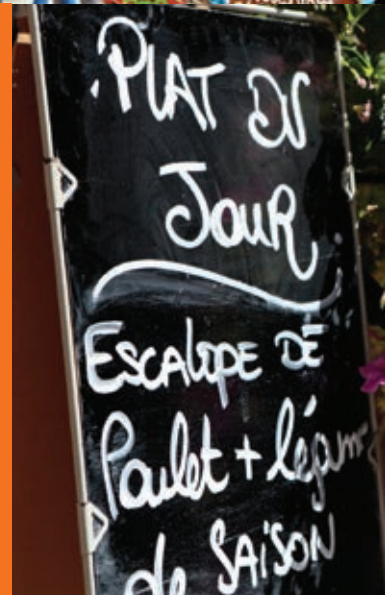 PLAT DU
JOUR
ESCALOPE DE
Poulet + légume
de SAISON